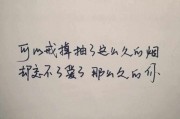 可以戒掉抽了这么久的烟
却忘不了爱了那么久的你